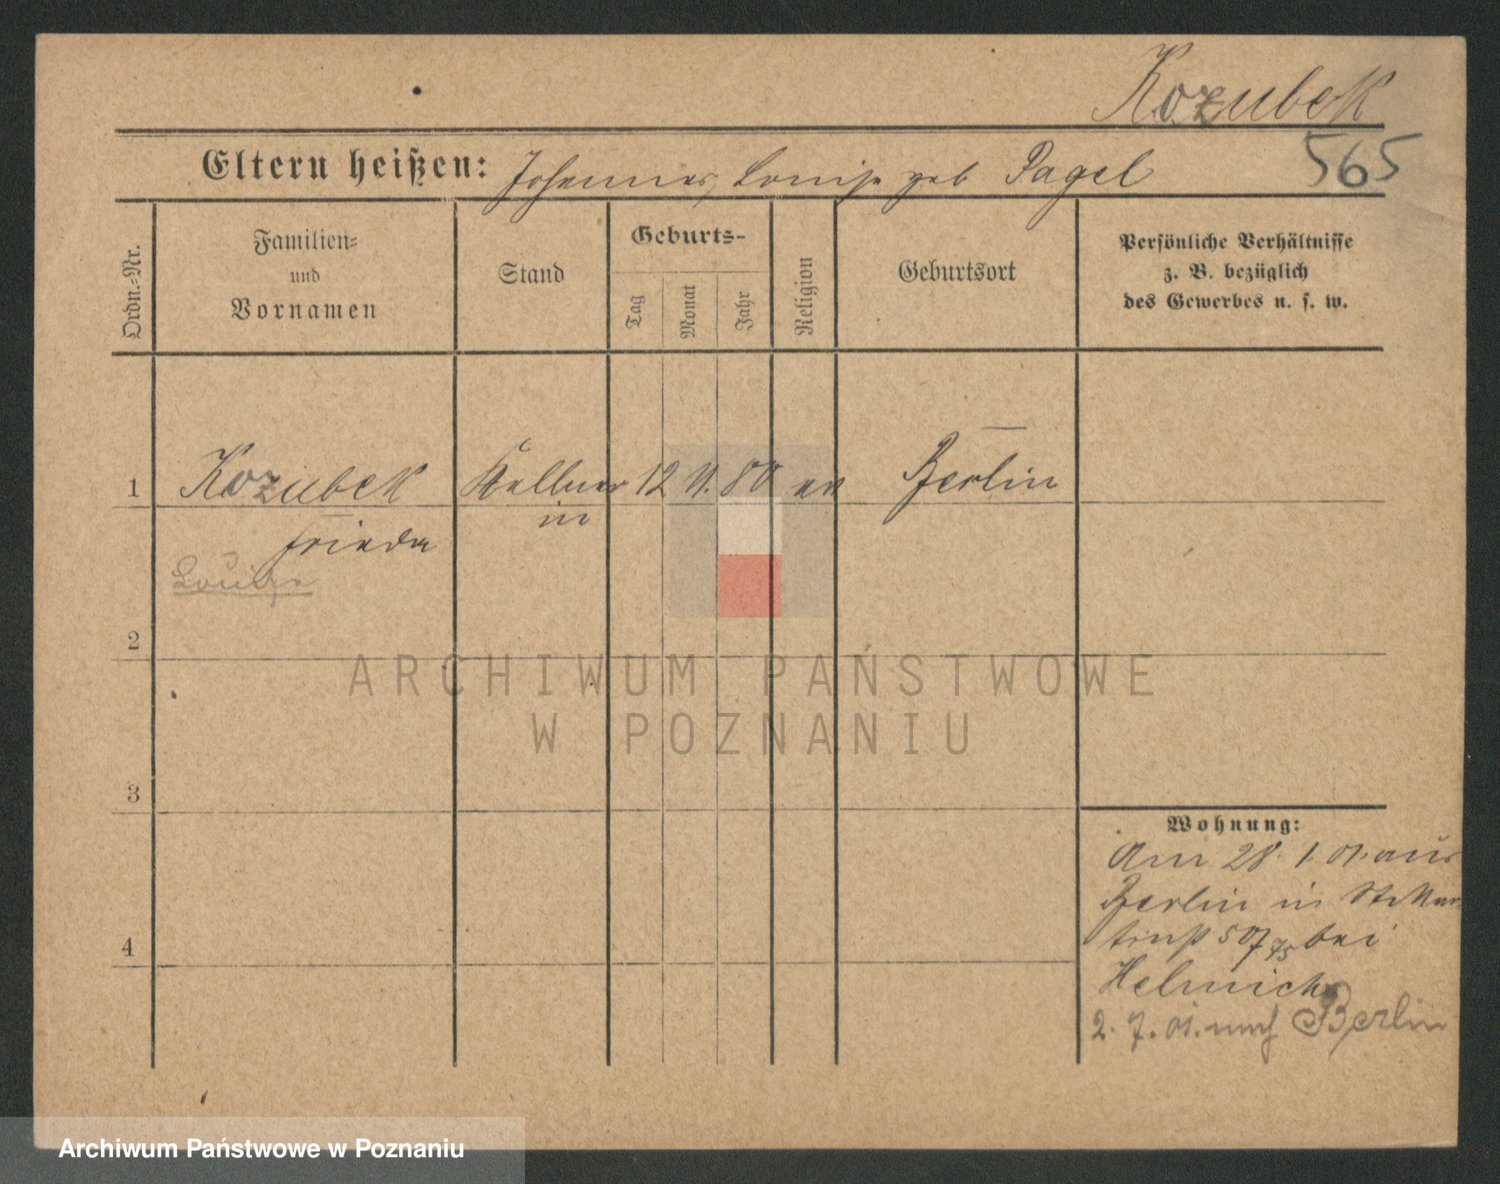 Kozubek
Eltern heißen: Johannes, Louise geb Pagel
565
Ordn.-Nr.
Familien- und Vornamen
Stand
Geburts-
Tag
Monat
Jahr
Religion
Geburtsort
Persönliche Verhältnisse
z. B. bezüglich
des Gewerbes u. s. w.
1 Kozubek Kellner 12 11. 80 ev Berlin
in
Frieda
Louise
2
ARCHIWUM PAŃSTWOWE
W POZNANIU
3
Wohnung:
Am 28. 1. 01. aus
Berlin in St. Mar
tinstr 50/75 bei
4
Helmich
2. 7. 01. nach Berlin
Archiwum Państwowe w Poznaniu